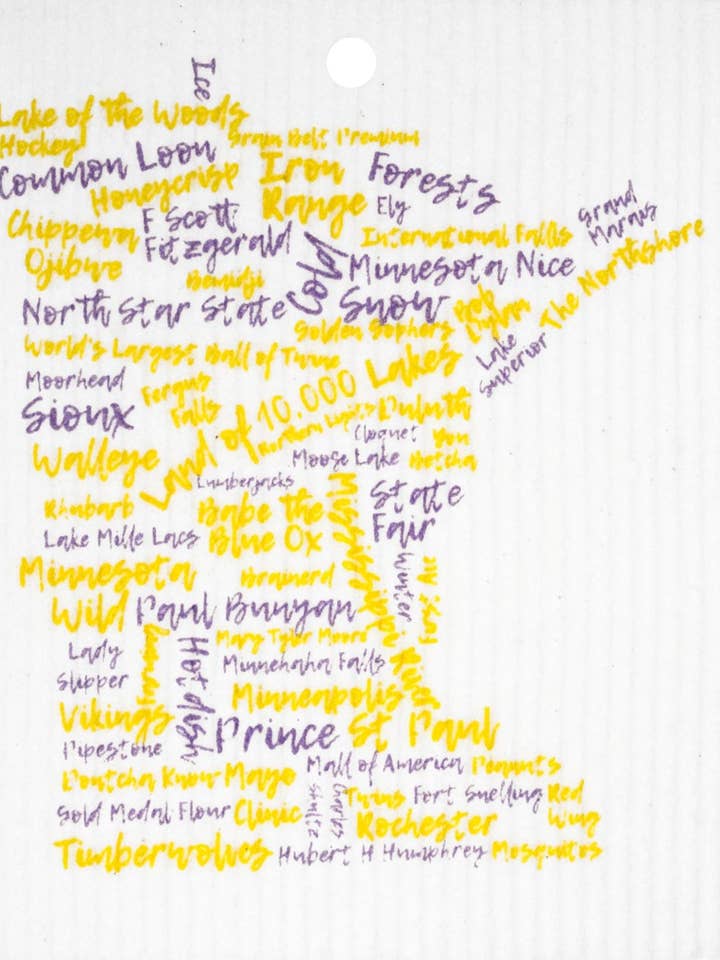 Ice
Lake of the Woods
Hockey
Grain Belt Premium
Common Loon
Iron
Range
Forests
Honeycrisp
Ely
Grand
Marais
Chippewa
F Scott
Fitzgerald
International Falls
The Northshore
Ojibwe
Bemidji
Cold
Minnesota Nice
North Star State
Snow
Bob
Dylan
Golden Gophers
World's Largest Ball of Twine
Lake
Superior
Moorhead
Fergus
Falls
Land of 10,000 Lakes
Sioux
Northern Lights
Duluth
Cloquet
You
Betcha
Walleye
Moose Lake
Lumberjacks
State
Fair
Rhubarb
Babe the
Blue Ox
Mississippi River
Lake Mille Lacs
Winter
Minnesota
Wild
Brainerd
Paul Bunyan
Mary Tyler Moore
Lady
Slipper
Hotdish
Minnehaha Falls
Minneapolis
Vikings
Prince
St Paul
Pipestone
Mall of America
Peanuts
Dontcha Know
Mayo
Clinic
Gold Medal Flour
Charles
Shultz
Twins
Fort Snelling
Red
Wing
Rochester
Timberwolves
Hubert H Humphrey
Mosquitos